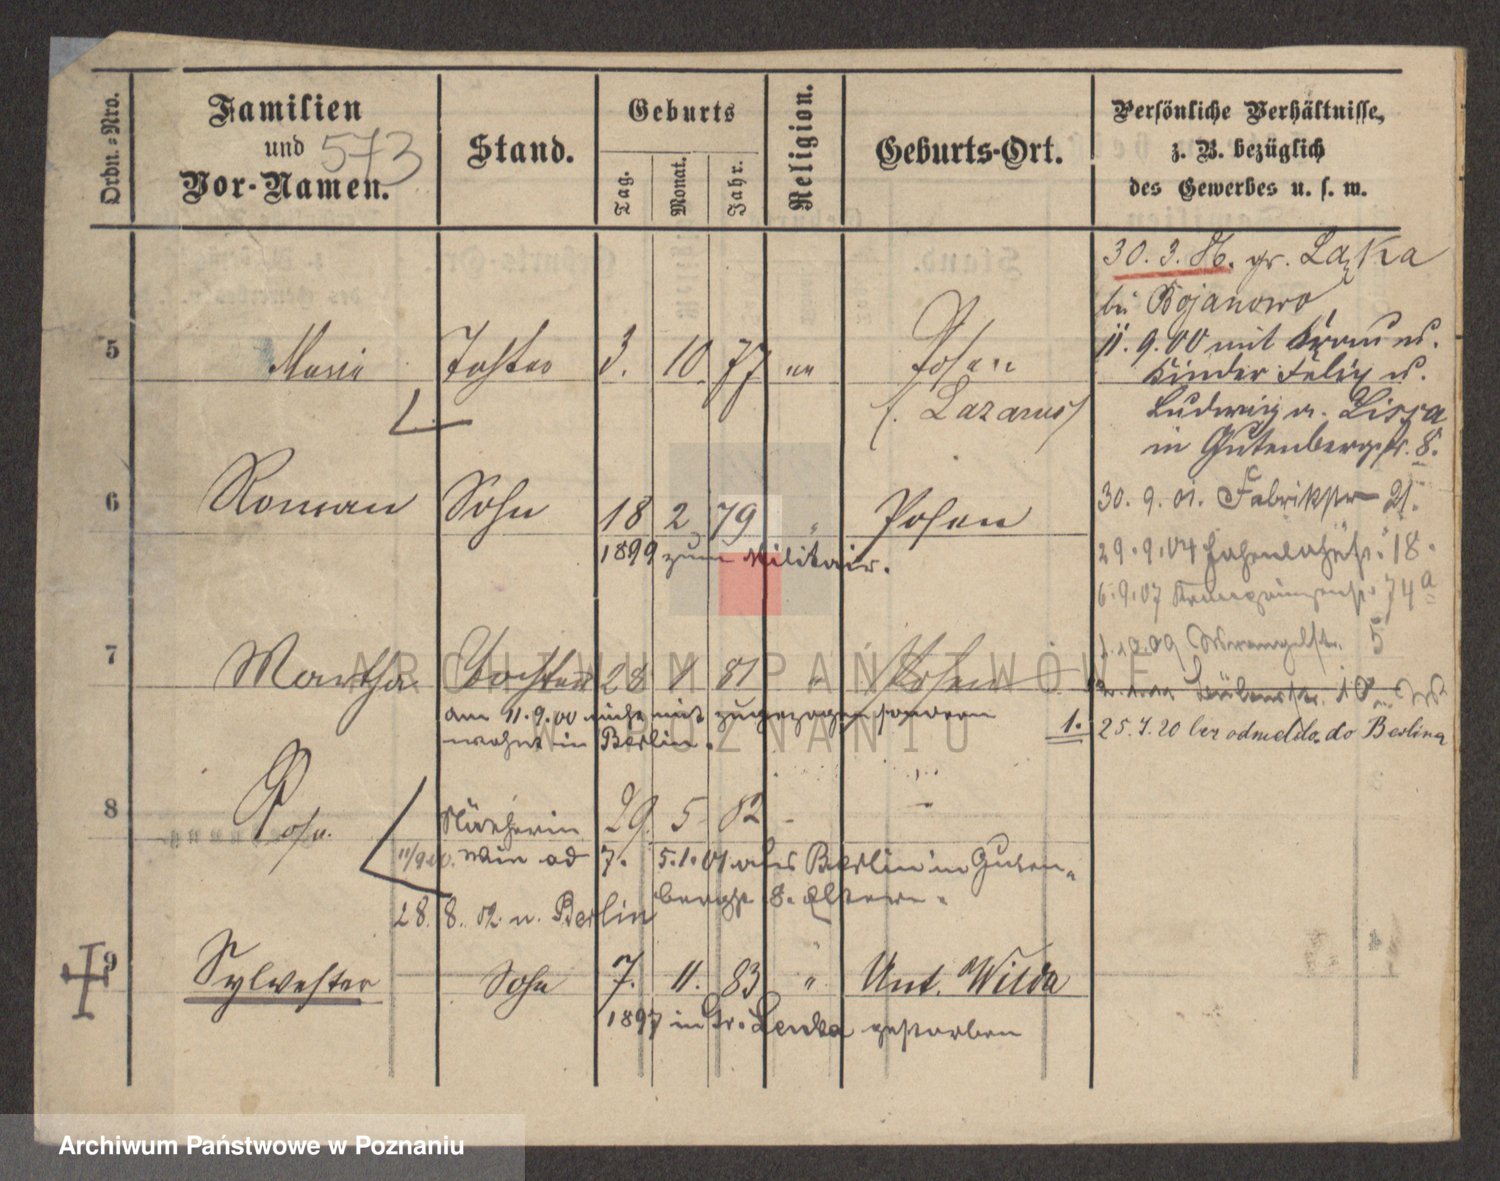 Ordn.-Nro.
Familien
und
Vor-Namen.
573
Stand.
Geburts
Tag.
Monat.
Jahr.
Religion.
Geburts-Ort.
Persönliche Verhältnisse,
z. B. bezüglich
des Gewerbes u. s. w.
30. 3. 86. gr. Lazka
bei Bojanowo
11. 9. 00 mit Frau u.
Kinder Felix u.
Ludwig a. Lissa
in Gutenbergstr. 8.
5
Marie
Tochter
3. 10. 77
Posen
(. Lazarus)
6
Roman
Sohn
18 2 79 "
Posen
1899 zum Militair.
30. 9. 01. Fabrikstr 21.
29. 9. 04 18.
6. 9. 07 74a
1. 10. 09 Wrangelstr. 5
7
Martha
Tochter
28 1 81 "
Posen
am 11. 9. 00 nicht mit zugezogen sondern
wohnt in Berlin.
1.
25. 7. 20 bez odmeld. do Berlina
8
Rosa
Näherin
29. 5 82
11/9.00. 7. 5. 1. 01 aus Berlin in Guten-
bergstr 8. Eltern.
28. 8. 02. n. Berlin
9
Sylvester
Sohn
7. 11. 83 "
Unt. Wilda
1897 in Gr. Lenka gestorben
ARCHIWUM PAŃSTWOWE
W POZNANIU
Archiwum Państwowe w Poznaniu